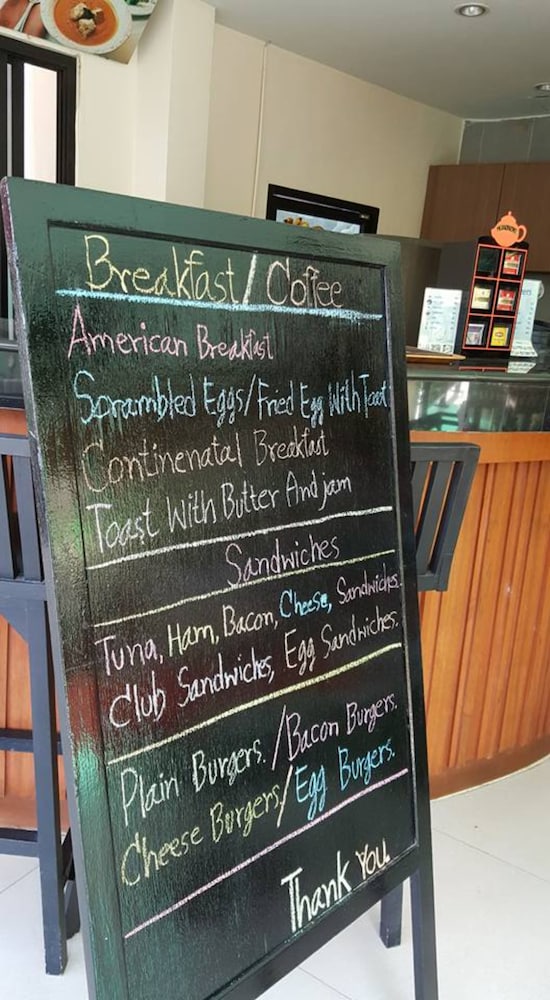 Breakfast/Coffee
American Breakfast
Scrambled Eggs/Fried Egg With Toat
Continenatal Breakfast
Toast With Butter And jam
Sandwiches
Tuna, Ham, Bacon, Cheese, Sandwiches.
Club Sandwiches, Egg Sandwiches.
Plain Burgers./Bacon Burgers.
Cheese Burgers/Egg Burgers.
Thank You.